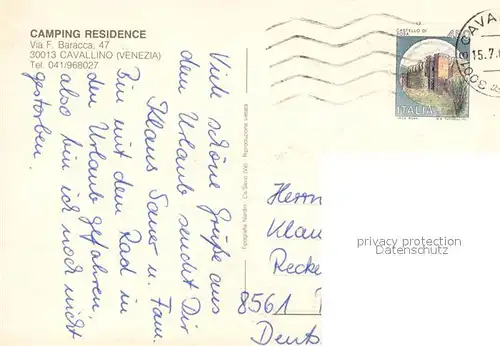 CAMPING RESIDENCE
Via F. Baracca, 47
30013 CAVALLINO (VENEZIA)
Tel. 041/968027
Viele schöne Grüße aus
dem Urlaub sendet Dir
Klaus Sauer u. Fam.
Bin mit dem Rad in
den Urlaub gefahren,
also bin ich noch nicht
gestorben.
Tipografia Nardin - Ca'Savio (Ve) - Riproduzione vietata
CASTELLO DI
ITALIA
30013 CAVA
15.7.
Herrn
Klau
Recke
8561
Deuts
privacy protection
Datenschutz